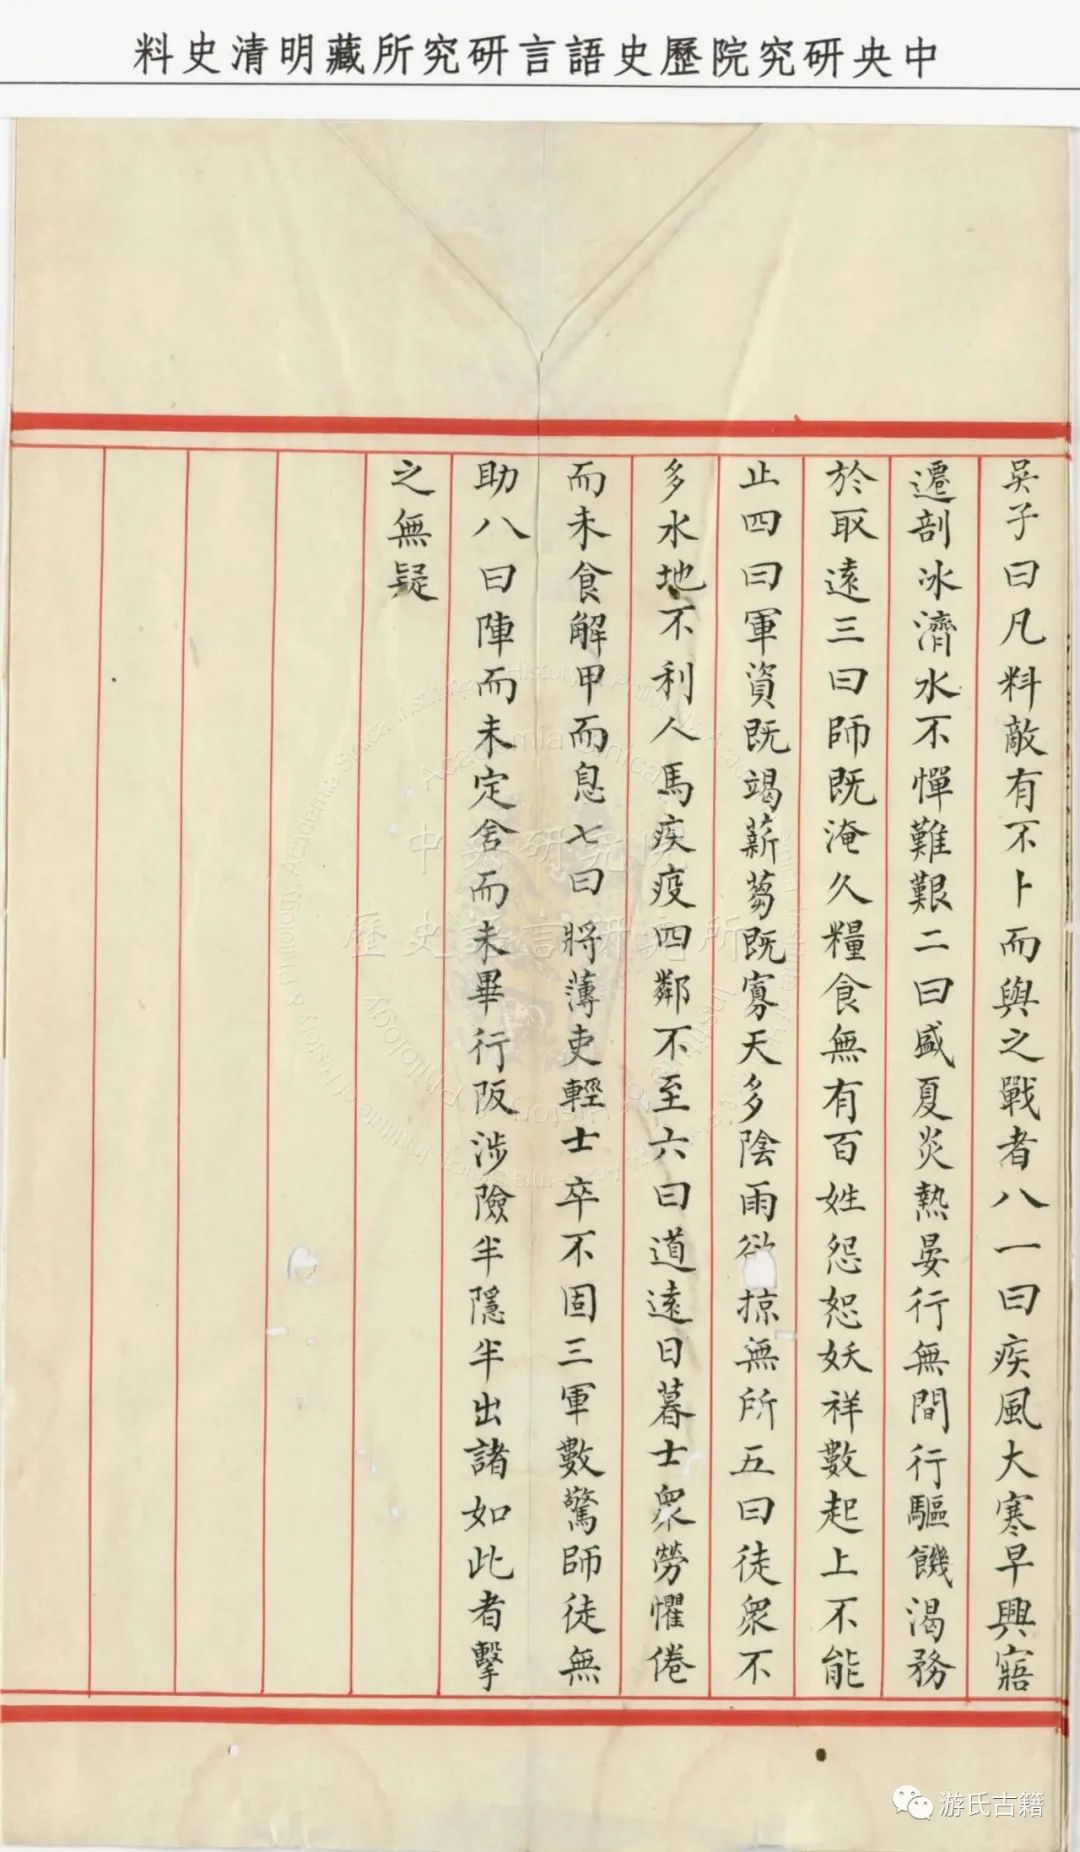 中央研究院歷史語言研究所藏明清史料
吳子曰凡料敵有不卜而與之戰者八一曰疾風大寒早興寤
遷剖冰濟水不憚難艱二曰盛夏炎熱晏行無間行驅饑渴務
於取遠三曰師既淹久糧食無有百姓怨恕妖祥數起上不能
止四曰軍資既竭薪蒭既寡天多陰雨欲掠無所五曰徒眾不
多水地不利人馬疾疫四鄰不至六曰道遠日暮士眾勞懼倦
而未食解甲而息七曰將薄吏輕士卒不固三軍數驚師徒無
助八曰陣而未定舍而未畢行阪涉險半隱半出諸如此者擊
之無疑
中央研究院
歷史語言研究所
Institute of History & Philology, Academia Sinica
游氏古籍